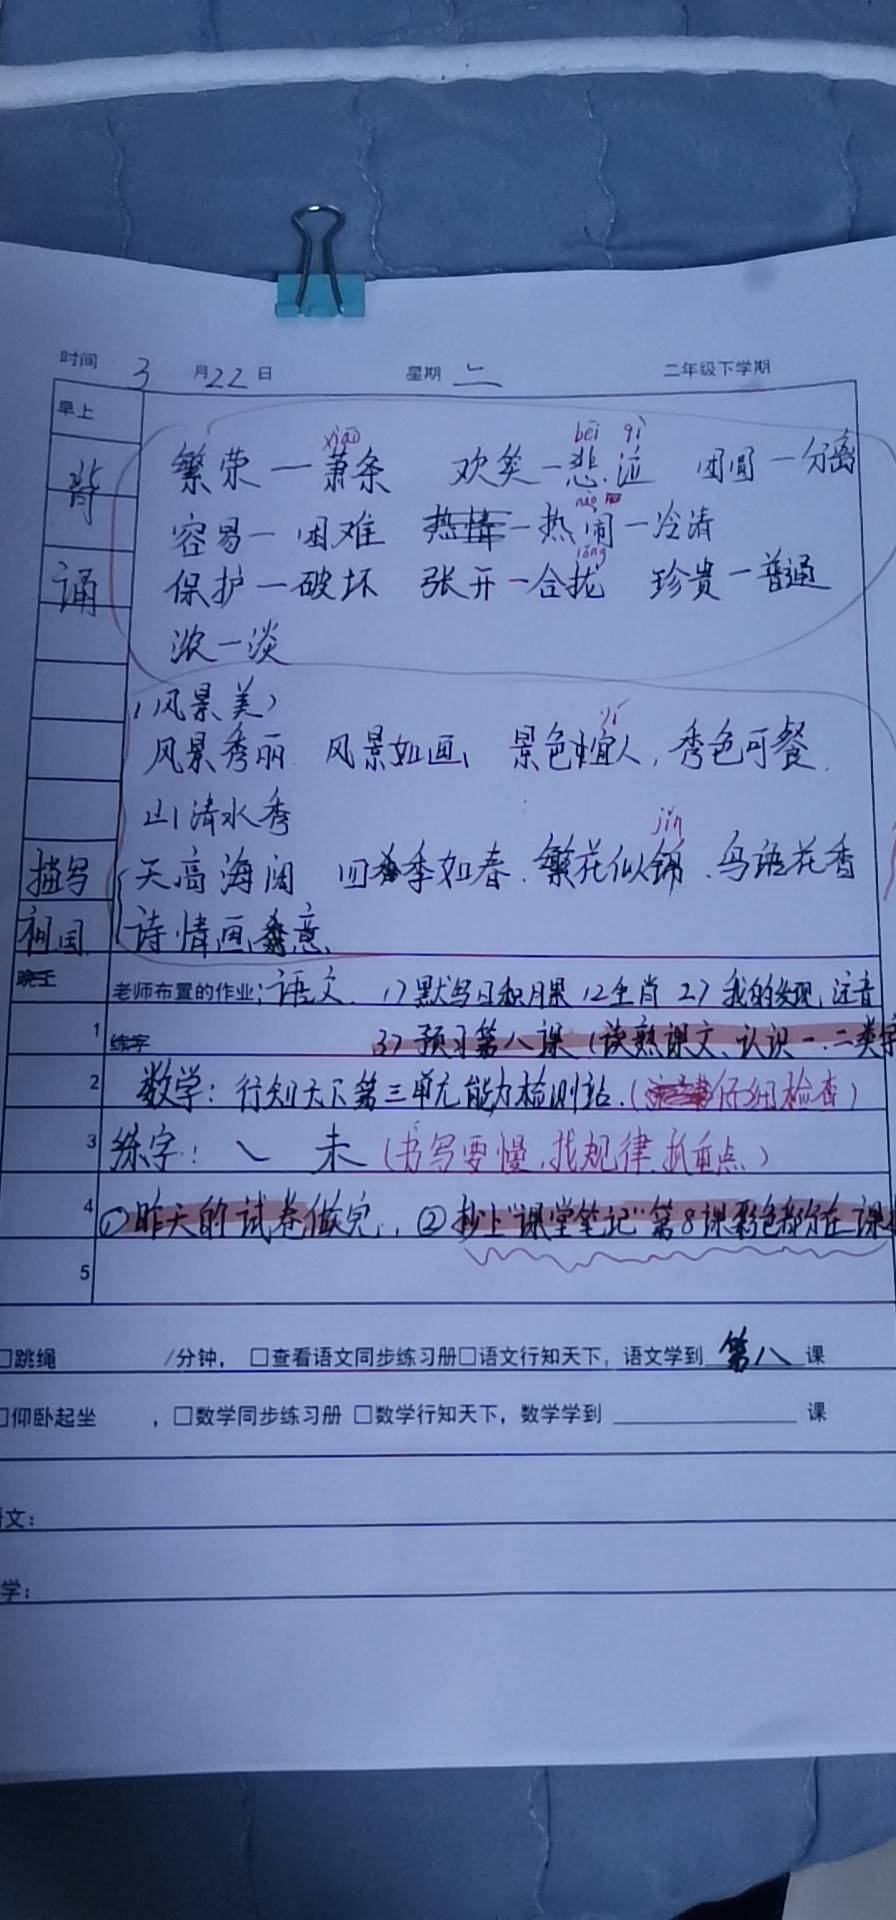 时间 3 月22日 星期 二 二年级下学期
早上
背
诵
xiāo bēi qì
繁荣一萧条 欢笑一悲泣 团圆一分离
nào
容易一困难 热情一热闹一冷清
lǒng
保护一破坏 张开一合拢 珍贵一普通
浓一淡
(风景美)
yí
风景秀丽 风景如画、景色宜人,秀色可餐.
山清水秀
jǐn
描写 天高海阔 四季如春.繁花似锦、鸟语花香
祖国 诗情画意、
晚上 老师布置的作业:语文. 1)默写日积月累12生肖 2)我的发现,注音
1 练字 3)预习第八课(读熟课文、认识一.二类字
2 数学:行知天下第三单元能力检测站.(仔细检查)
3 练字:㇏ 未(书写要慢,找规律,抓重点)
4 ①昨天的试卷做完., ②抄上"课堂笔记"第8课彩色部分在课
5
□跳绳 /分钟, □查看语文同步练习册□语文行知天下, 语文学到 第八 课
□仰卧起坐 , □数学同步练习册 □数学行知天下, 数学学到 课
文:
学: